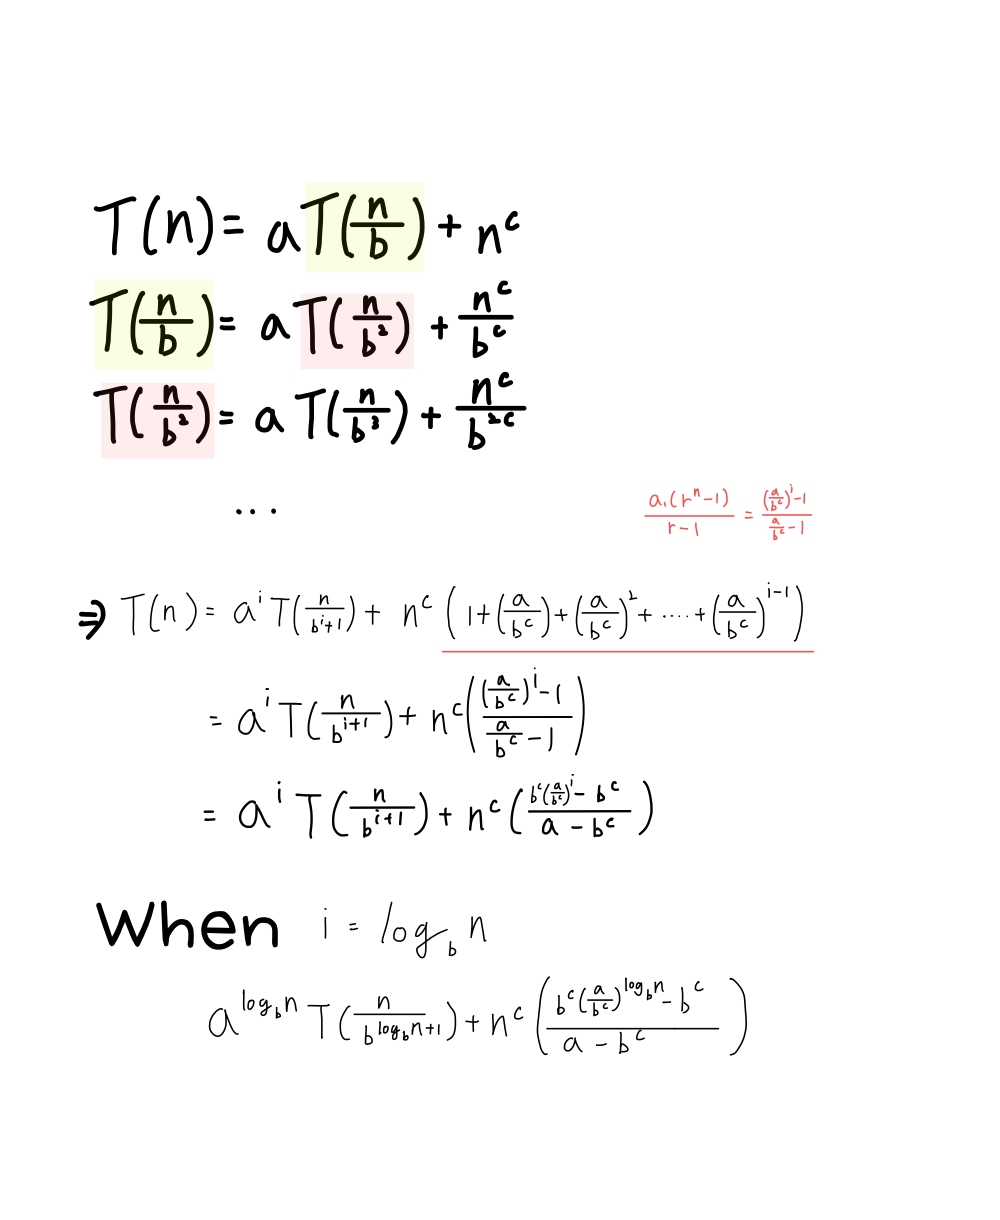 T(n) = aT(n/b) + n^c
T(n/b) = aT(n/b^2) + n^c/b^c
T(n/b^2) = aT(n/b^3) + n^c/b^{2c}
...
a₁(r^n-1)/(r-1) = ((a/b^c)^i-1)/(a/b^c-1)
⇒ T(n) = a^i T(n/b^{i+1}) + n^c (1+(a/b^c)+(a/b^c)^2+....+(a/b^c)^{i-1})
= a^i T(n/b^{i+1}) + n^c(((a/b^c)^i-1)/(a/b^c-1))
= a^i T(n/b^{i+1}) + n^c((b^c(a/b^c)^i-b^c)/(a-b^c))
When i = log_b n
a^{log_b n} T(n/b^{log_b n+1}) + n^c((b^c(a/b^c)^{log_b n}-b^c)/(a-b^c))